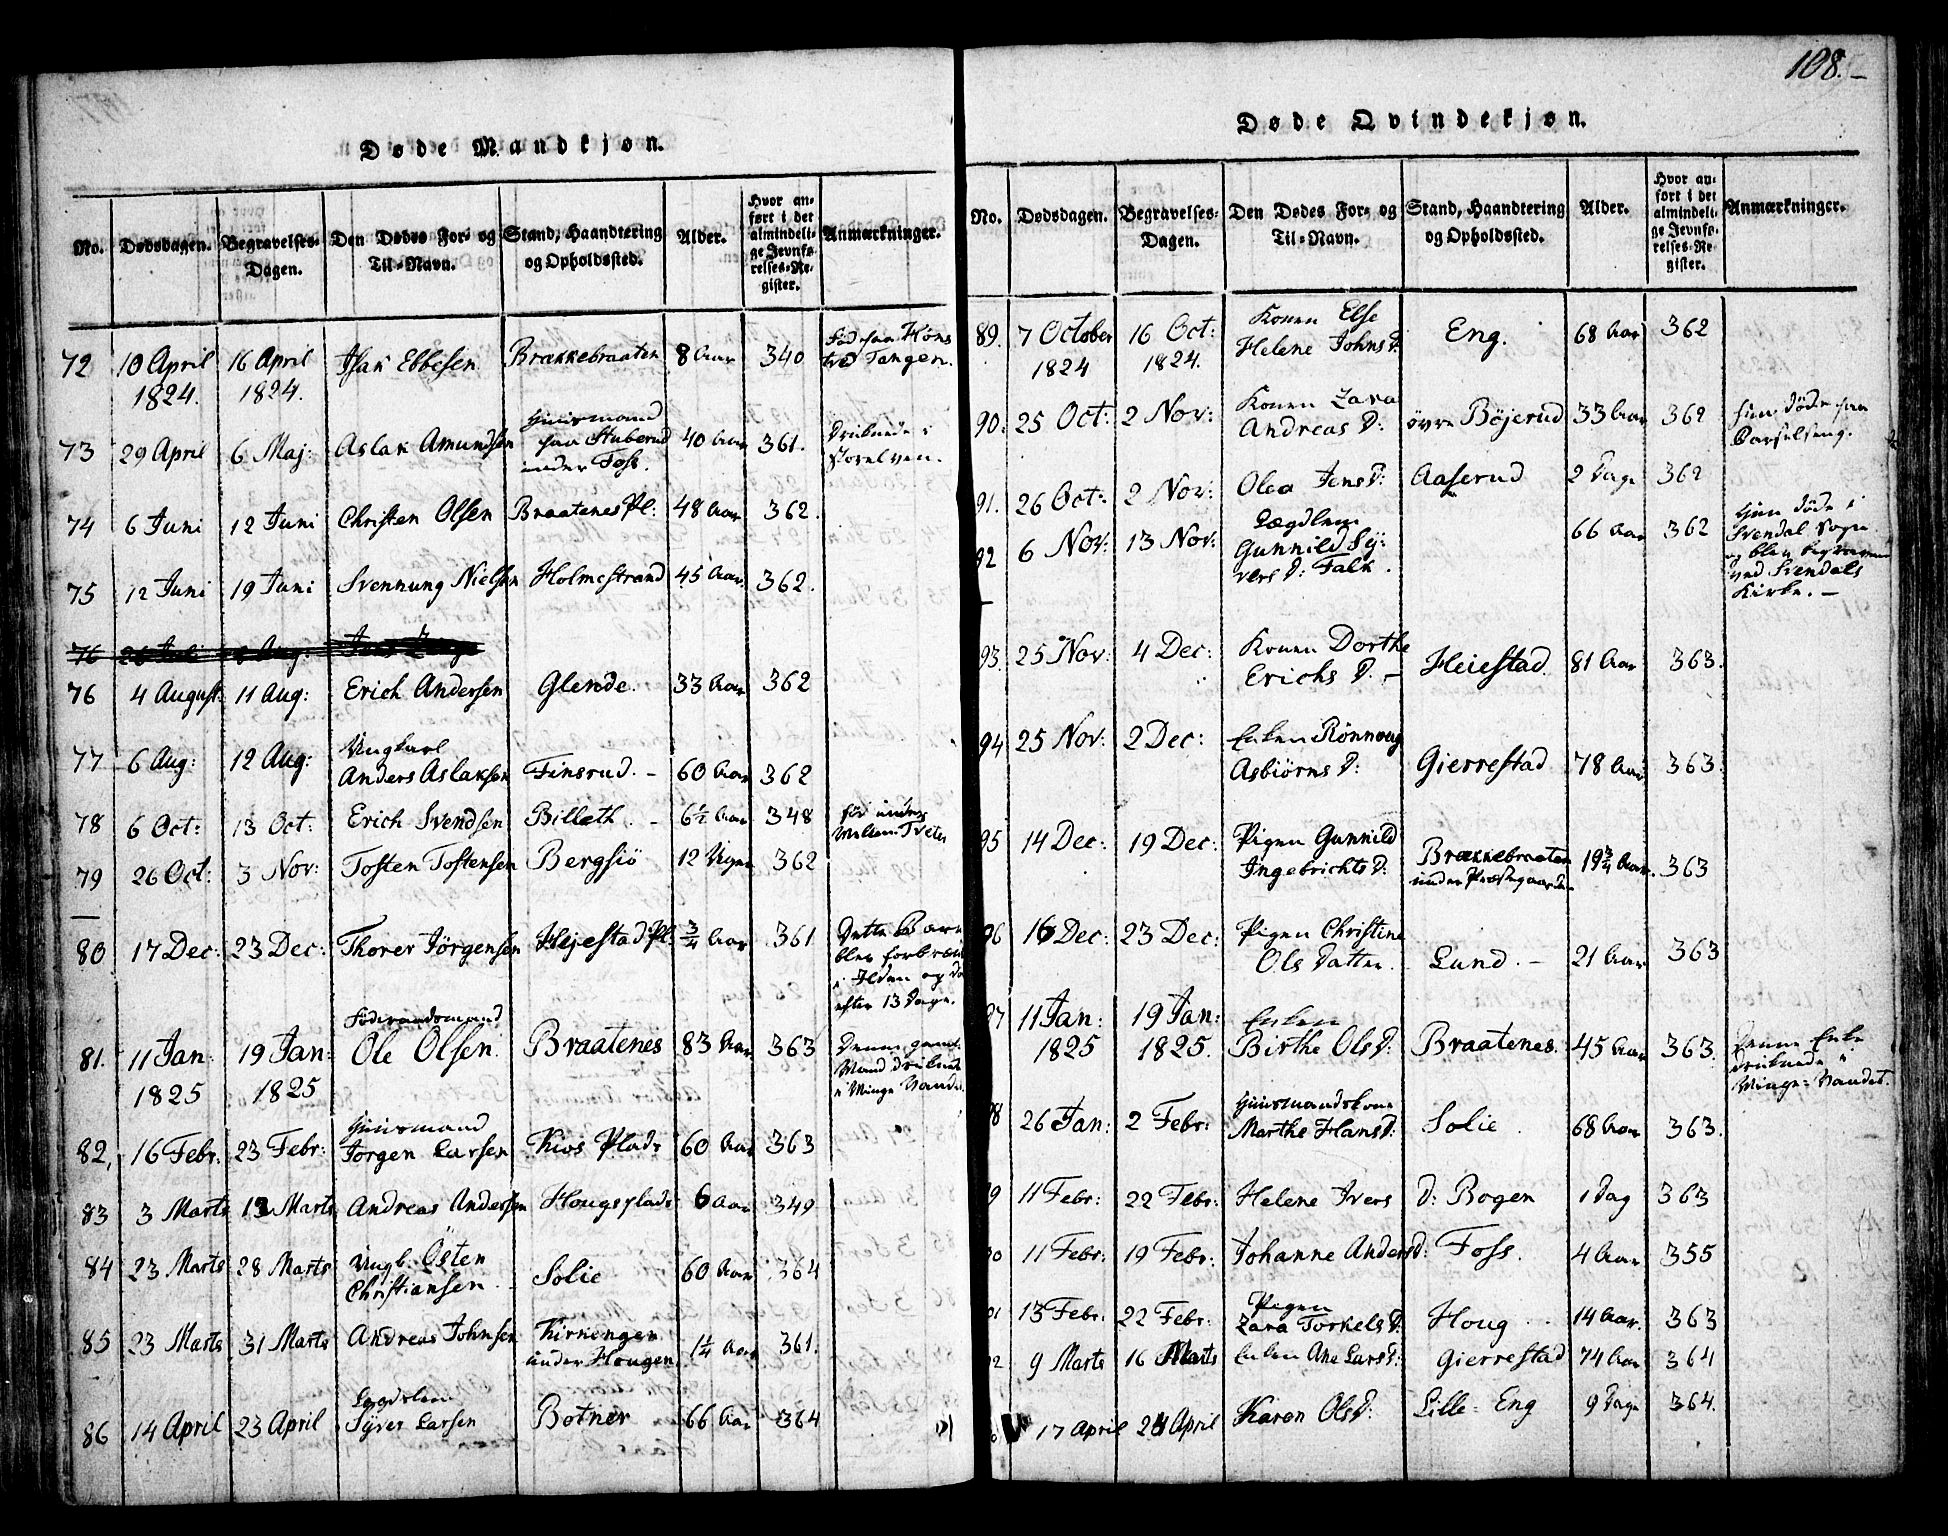 108.
Døde Mandkjøn.
No. Dødsdagen. Begravelses-Dagen. Den Dødes For- og Til-Navn. Stand, Haandtering og Opholdssted. Alder. Hvor anført i det almindelige Jevnførelses-Register. Anmærkninger.
72 10 April 1824. 16 April 1824. Isak Ebbesen Brækkebraaten 8 Aar 340
73 29 April 6 Maj: Aslak Amundsen Huusmand paa Stuberud under Foss. 40 Aar 361. Druknede i Storelven.
74 6 Juni 12 Juni Christen Olsen Braatenes Pl: 48 Aar 362.
75 12 Juni 19 Juni Svennung Nielsen Holmestrand 45 Aar 362.
76 26 Juli Aug:
76 4 August. 11 Aug: Erich Andersen Glende. 33 Aar 362
77 6 Aug: 12 Aug: Ungkarl Anders Aslaksen Finsrud. - 60 Aar 362
78 6 Oct: 13 Oct: Erich Svendsen Billeth. - 6½ Aar 348
79 26 Oct: 3 Nov: Tosten Tostensen Bergsiö 12 Uger 362
80 17 Dec: 23 Dec: Thorer Jörgensen Hejestad Pl. ¾ Aar 361 Dette Barn blev forbrændt i Ilden og døde efter 13 Dage.
81. 11 Jan: 1825 19 Jan: 1825 Föderaadsmand Ole Olsen. Braatenes 83 Aar 363 Denne gamle Mand druknede i Minge Vandet.
82, 16 Febr: 23 Febr: Huusmand Jörgen Larsen Kios Plads 60 Aar 363
83 3 Marts 13 Marts Andreas Andersen Hougsplads 6 Aar 349
84 23 Marts 28 Marts Ungk. Östen Christiansen Solie 60 Aar 364
85 23 Marts 31 Marts Andreas Johnsen Kirkeengen under Hougen. 1¼ Aar 361.
86 14 April 23 April Lægdslem Syver Larsen Botner 66 Aar 364
Døde Qvindekjøn.
No. Dødsdagen. Begravelses-Dagen. Den Dødes For- og Til-Navn. Stand, Haandtering og Opholdssted. Alder. Hvor anført i det almindelige Jevnførelses-Register. Anmærkninger.
89. 7 October 1824 16 Oct: 1824. Konen Else Helene Johns D. Eng. 68 Aar 362
90. 25 Oct: 2 Nov: Konen Zara Andreas D: övre Böjerud 33 Aar 362 hun døde paa Barselseng.
91. 26 Oct: 2 Nov: Olea Jens D: Aaserud 2 Dage 362
92 6 Nov: 13 Nov: Lægdlem Gunnild Syvers D: Falk. 66 Aar 362 Hun døde i Svendal Sogn og blev begraven ved Svendals Kirke. -
93. 25 Nov: 4 Dec: Konen Dorthe Erichs D. - Heiestad. 81 Aar 363.
94 25 Nov: 2 Dec: Enken Rönnoug Asbiörns D: Gierrestad 78 Aar 363.
95 14 Dec: 19 Dec: Pigen Gunnild Ingebrichts D: Brækkebraaten under Præstegaarden 19¾ Aar. 363
96 16 Dec: 23 Dec: Pigen Christine Ols Datter. Lund. - 21 Aar 363
97 11 Jan: 1825 19 Jan: 1825. Enken Birthe Ols D: Braatenes. 45 Aar 363. Denne Enke druknede i Minge-Vandet.
98 26 Jan: 2 Febr: Huusmandskone Marthe Hans D: Solie. 68 Aar 363.
99 11 Febr: 22 Febr: Helene Ivers D: Bogen 1 Dag 363
11 Febr: 19 Febr: Johanne Anders D: Foss. 4 Aar 355
13 Febr. 22 Febr: Pigen Zara Torkels D. Houg 14 Aar. 363
9 Marts 16 Marts Enken Ane Lars D: Gierrestad 74 Aar 364
17 April 24 April Karen Ols D: Lille-Eng 9 Dage 364.